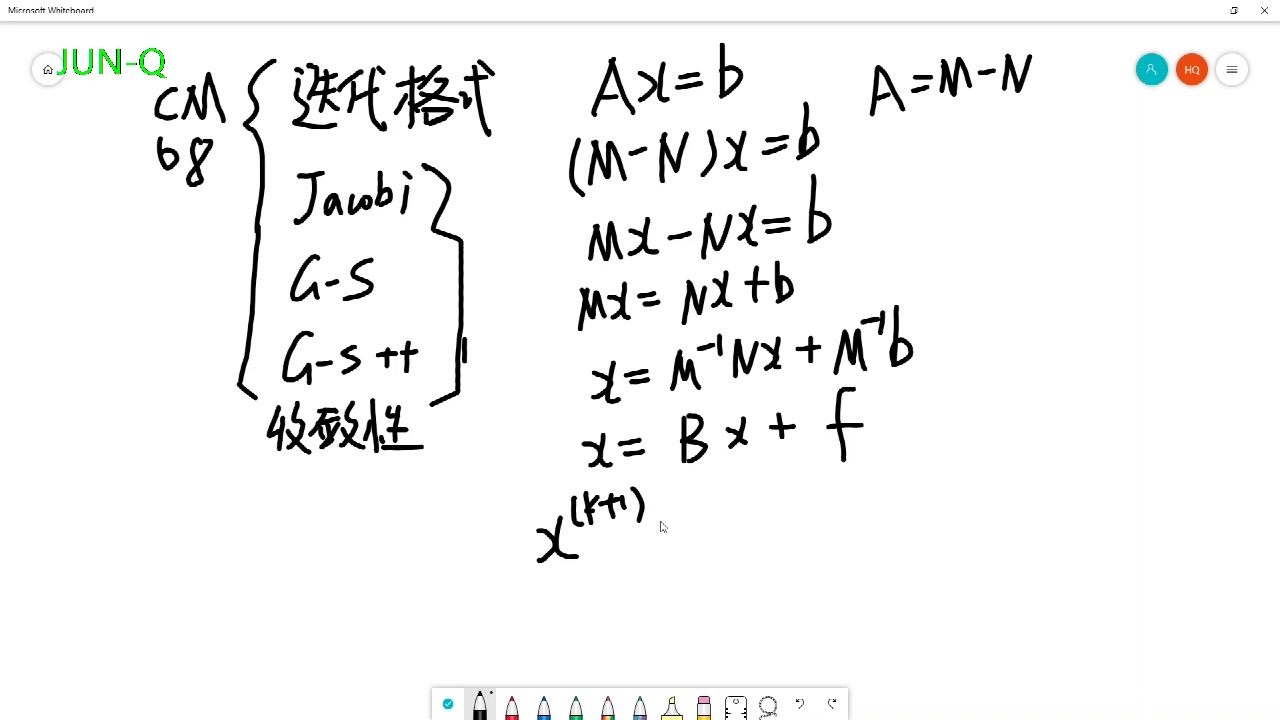 Microsoft Whiteboard
JUN-Q
HQ
CM
68
迭代格式
Jacobi
G-S
G-S++
收敛性
Ax=b
A=M-N
(M-N)x=b
Mx-Nx=b
Mx=Nx+b
x=M⁻¹Nx+M⁻¹b
x=Bx+f
x⁽ᵏ⁺¹⁾